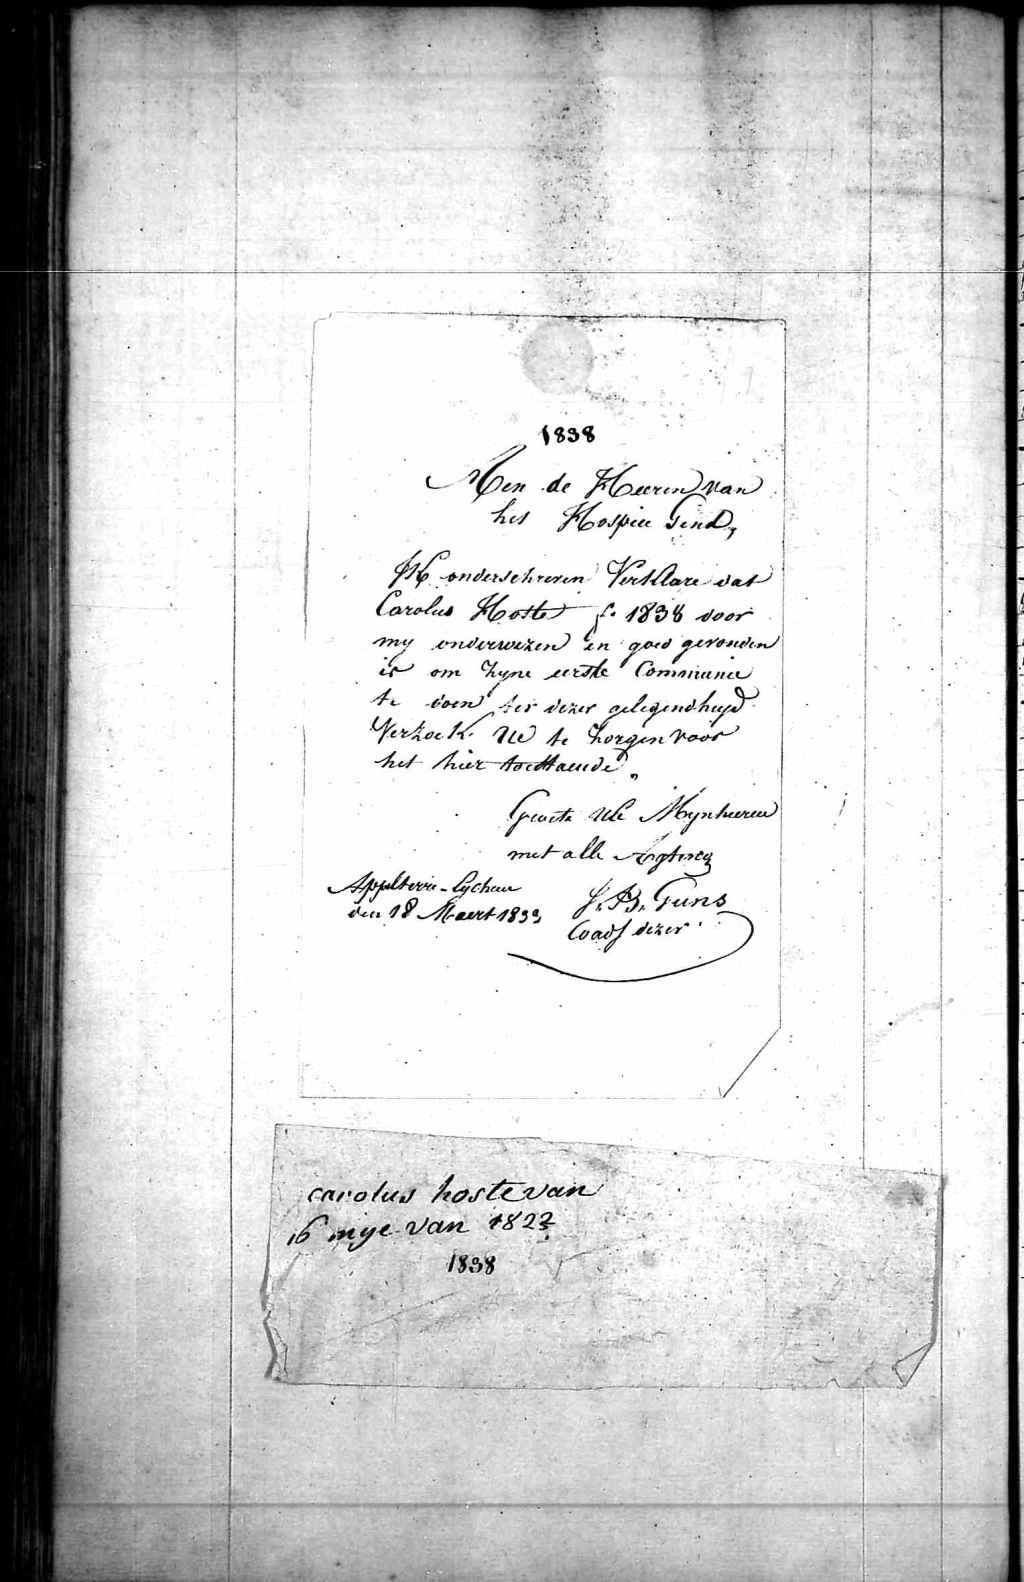 1838
Aen de Heeren van
het Hospice Gend,
Ik onderschreven Verklare dat
Carolus Hoste f. 1838 door
my onderwezen en goed gevonden
is om zyne eerste Communie
te doen ter dezer gelegendheyd
Verzoek Ue te zorgen voor
het hier toestaende
Groete Ule Mynheeren
met alle
Appelterre-Eychem
den 18 Maert 1833
J. B. Guns
Coadj dezer
carolus hoste van
16 mye van 1822
1838